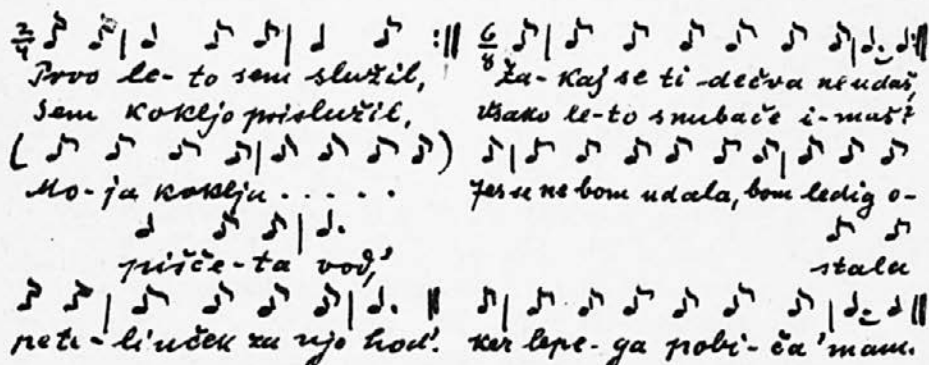 2/4
Prvo le-to sem služil,
Sem kokljo prislužil,
Mo-ja koklja . . . . .
pišče-ta vod,'
pete-linček za njo hod'.
6/8
Za-kaj se ti dečva ne udaš,
Vsako le-to snubače i-maš?
Jes se ne bom udala, bom ledig o-
stala
ker lepe-ga pobi-ča 'mam.